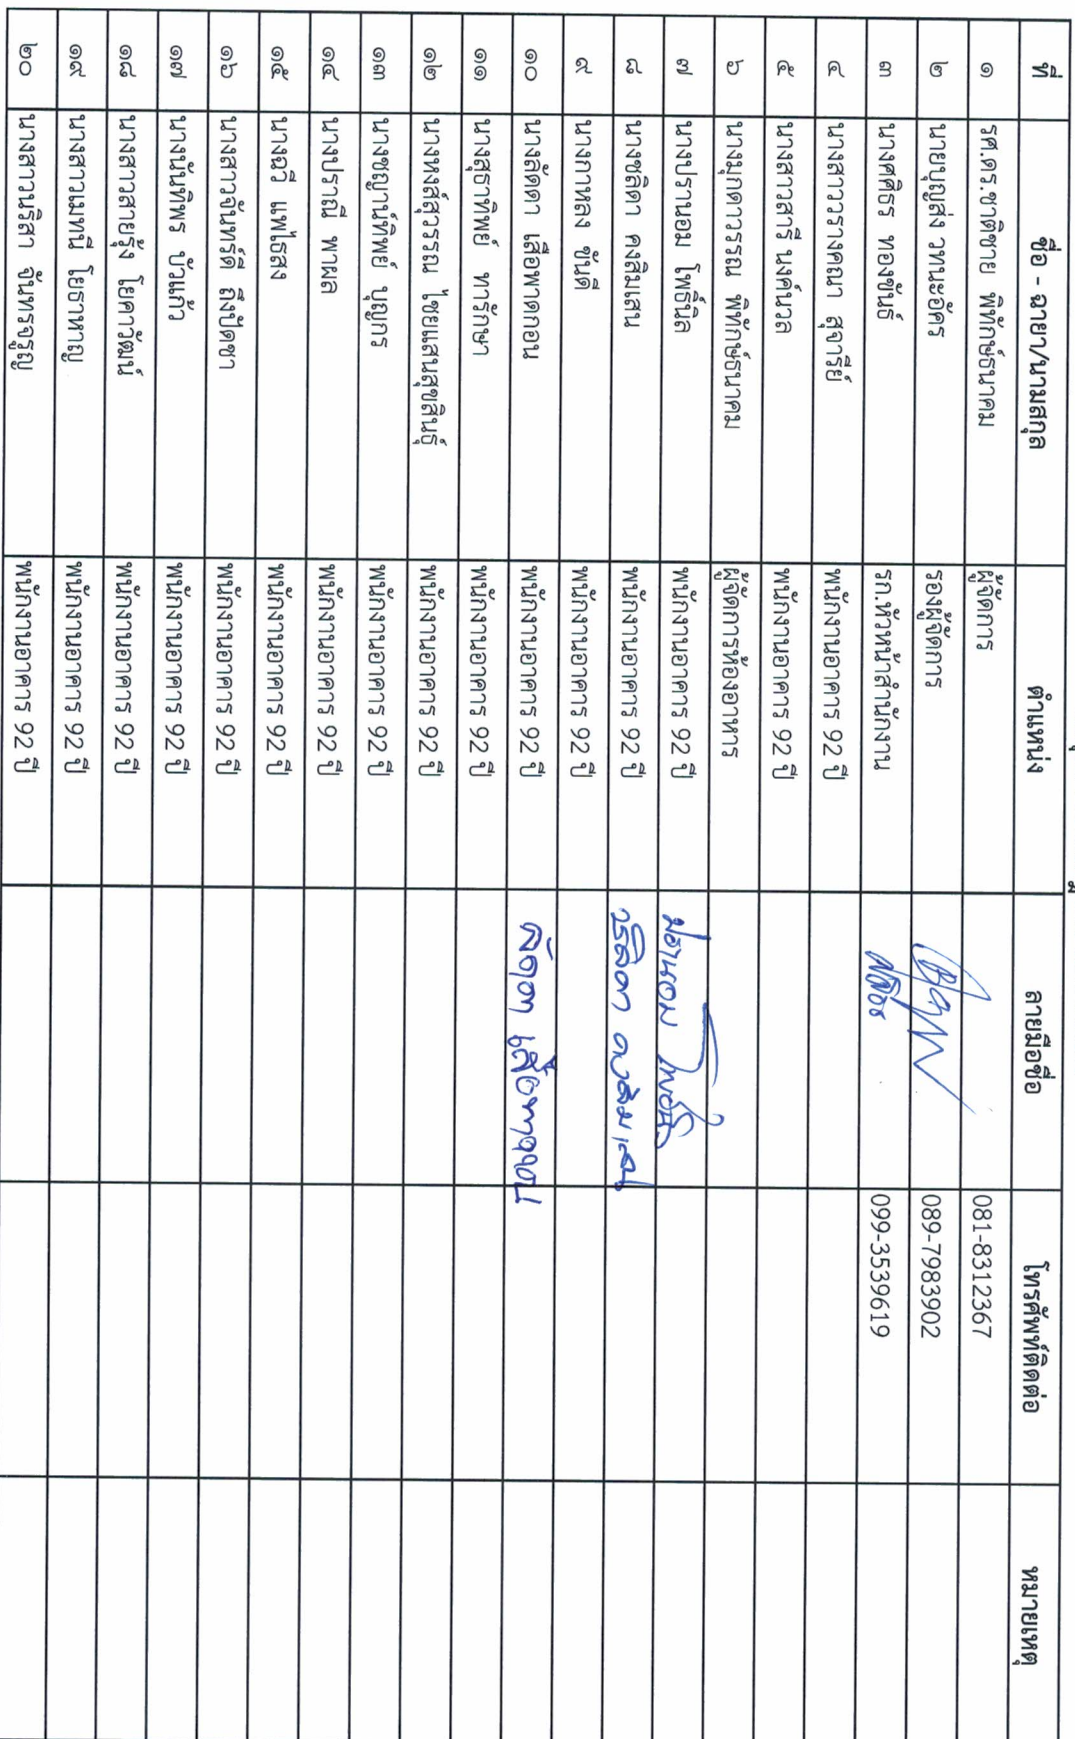 ที่ ชื่อ - ฉายา/นามสกุล ตำแหน่ง ลายมือชื่อ โทรศัพท์ติดต่อ หมายเหตุ
๑ รศ.ดร.ชาติชาย พิทักษ์ธนาคม ผู้จัดการ 081-8312367
๒ นายบุญส่ง วทนะอัคร รองผู้จัดการ 089-7983902
๓ นางศศิธร ทองขันธ์ รก.หัวหน้าสำนักงาน ศศิธร 099-3539619
๔ นางสาววรางคณา สุจารีย์ พนักงานอาคาร 92 ปี
๕ นางสาวสารี นงค์นวล พนักงานอาคาร 92 ปี
๖ นางมุกดาวรรณ พิทักษ์ธนาคม ผู้จัดการห้องอาหาร
๗ นางปรานอม โพธิ์นิล พนักงานอาคาร 92 ปี ปรานอม โพธิ์นิล
๘ นางชลิดา คงสิมเสน พนักงานอาคาร 92 ปี ชลิดา คงสิมเสน
๙ นางกาหลง ขันดี พนักงานอาคาร 92 ปี
๑๐ นางลัดดา เสือพาดกอน พนักงานอาคาร 92 ปี ลัดดา
๑๑ นางสุธาทิพย์ ทารักษา พนักงานอาคาร 92 ปี
๑๒ นางหงส์สุวรรณ ไชยแสนสุขสินธุ์ พนักงานอาคาร 92 ปี
๑๓ นางชญานทิพย์ บุญกร พนักงานอาคาร 92 ปี
๑๔ นางปราณี พาผล พนักงานอาคาร 92 ปี
๑๕ นางฉวี แพไธสง พนักงานอาคาร 92 ปี
๑๖ นางสาวจันทร์ดี ถึงปัดชา พนักงานอาคาร 92 ปี
๑๗ นางนันทิพร บัวแก้ว พนักงานอาคาร 92 ปี
๑๘ นางสาวสายรุ้ง โยคาวัฒน์ พนักงานอาคาร 92 ปี
๑๙ นางสาวเมทนี โยธาหาญ พนักงานอาคาร 92 ปี
๒๐ นางสาวนริสา จันทรจรูญ พนักงานอาคาร 92 ปี